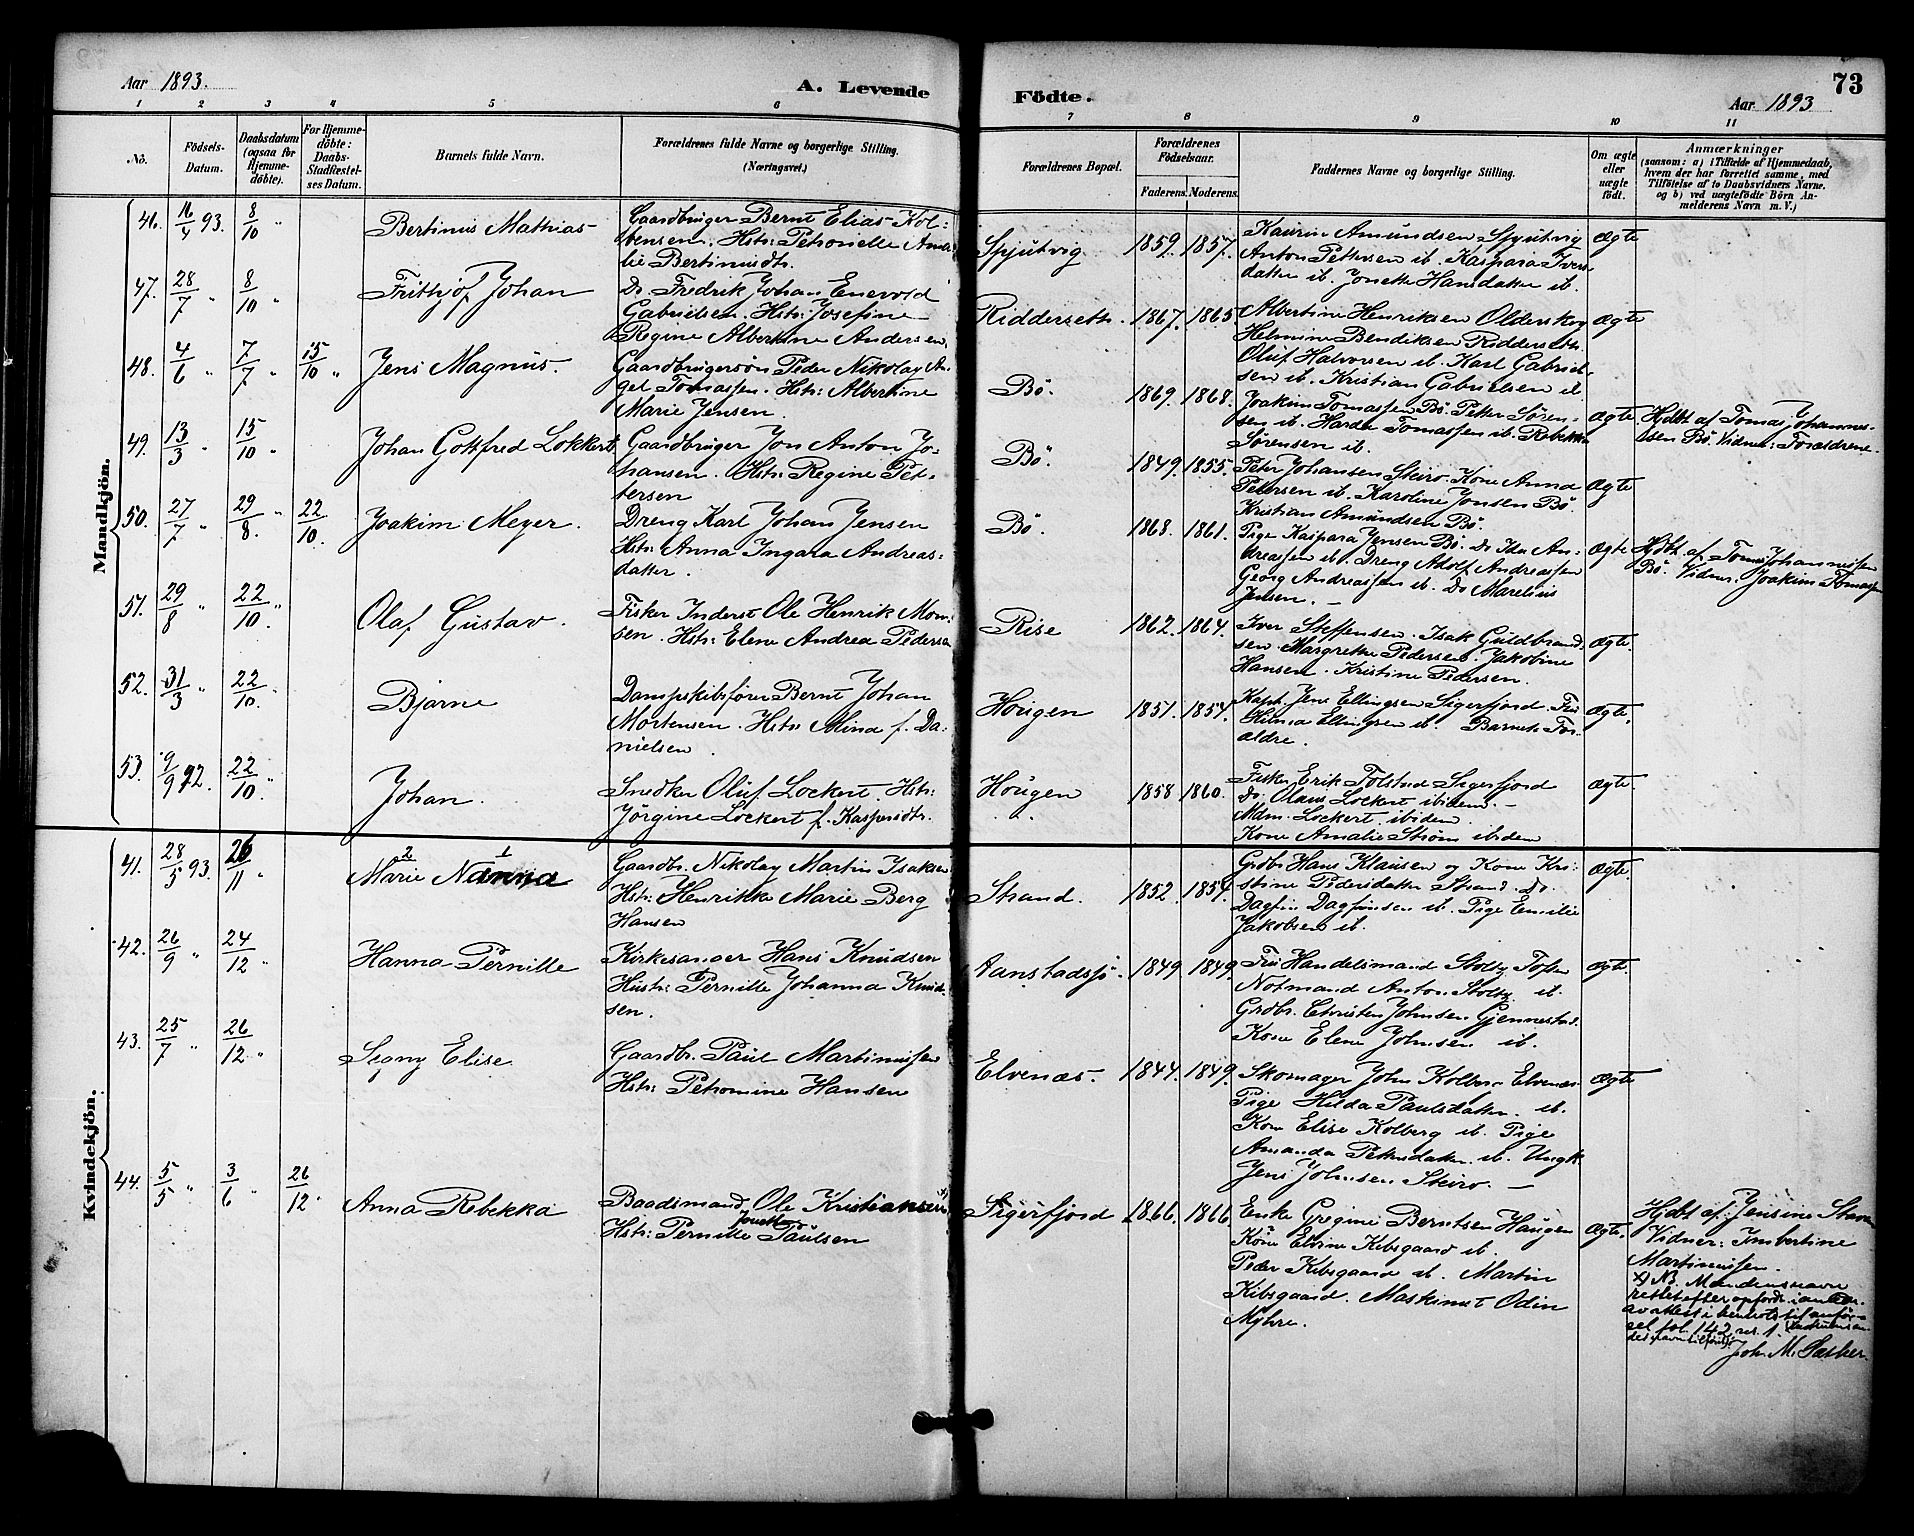 Aar 1893.
A. Levende
Födte.
73
Aar 1893
1 2 3 4 5 6 7 8 9 10 11
Nô.
Födsels-Datum.
Daabsdatum (ogsaa for Hjemme-döbte).
For Hjemme-döbte: Daabs-Stadfæstel-ses Datum.
Barnets fulde Navn.
Forældrenes fulde Navne og borgerlige Stilling.
(Næringsvei.)
Forældrenes Bopæl.
Forældrenes Födselsaar.
Faderens. Moderens.
Faddernes Navne og borgerlige Stilling.
Om ægte eller uægte födt.
Anmærkninger
(saasom: a) i Tilfælde af Hjemmedaab,
hvem der har forrettet samme, med
Tilföielse af to Daabsvidners Navne.
og b) ved uægtefödte Börn An-
melderens Navn m. V.)
Mandkjön.
46. 16/4 93. 8/10 " Bertinus Mathias
Gaardbruger Bernt Elias Kol-
bensen. Hstr: Petronelle Ama-
lie Bertinusdtr.
Spjutvig 1859. 1857.
Kaurin Amundsen Spjutvig
Anton Pettersen ib. Kaspara Ivers-
datter ib. Jonette Hansdatter ib.
Ægte
47. 28/7 " 8/10 " Frithjof Johan
Do. Fredrik Johan Enevold
Gabrielsen. Hstr: Josefine
Regine Albertine Andersen.
Ridderseth. 1867. 1865
Albertine Henriksen Olderskog
Helmine Bendiksen Ridderseth.
Oluf Halvorsen ib. Karl Gabriel-
sen ib. Kristian Gabrielsen ib.
Ægte
48. 4/6 " 7/7 " 15/10 " Jens Magnus.
Gaardbrugersön Peder Nikolay An-
gel Tomassen. Hstr: Albertine
Marie Jensen.
Bö. 1869. 1868.
Joakim Tomassen Bö. Petter Sören-
sen ib. Harder Tomassen ib. Rebekka
Sörensen ib.
Ægte
Hjdbt af Tomas Johannes-
sen Bö. Vidner: Forældrene.
49. 13/3 " 15/10 Johan Gottfred Lokkert
Gaardbruger Jon Anton Jo-
hansen. Hstr: Regine Pet-
tersen
Bö. 1849. 1855.
Peter Johansen Steiro. Kone Anna
Petersen ib. Karoline Jonsen Bö.
Kristian Amundsen Bö.
Ægte
50. 27/7 " 29/8. " 22/10. Joakim Meyer.
Dreng Karl Johan Jensen
Hstr: Anna Ingara Andreas-
datter.
Bö. 1868. 1861.
Pige Kaspara Jensen Bö. Do Ida An-
dreassen ib. Dreng Adolf Andreassen
Georg Andreassen ib. Do Marelius
Jensen. —
Ægte
Hjdbt. af Tomas Johannessen
Bö. Vidner. Joakim Tomassen
51. 29/8 " 22/10. " Olaf Gustav.
Fisker Inderst Ole Henrik Mon-
sen. Hstr: Elene Andrea Pedersen
Rise 1862. 1864.
Iver Steffensen. Isak Guldbrand-
sen. Margrethe Pedersen. Jakobine
Hansen. Kristine Pedersen.
Ægte.
52. 31/3 " 22/10. " Bjarne
Dampskibsförer Bernt Johan
Mortensen. Hstr: Mina f. Da-
nielsen.
Hougen 1851. 1854.
Kapt. Jens Ellingsen Sigerfjord Fru
Ellingsen ib. Barnets For-
ældre.
Ægte.
53. 9/9 92. 22/10. " Johan.
Snedker Oluf Lockert. Hstr:
Jörgine Lockert f. Kaspersdtr.
Hougen 1858 1860.
Fisker Erik Tolstad Sigerfjord
Do. Olaus Lockert ibidem. —
Mdm. Lockert ibidem.
Kone Amalie Ström ibidem
Ægte.
Kvindekjön.
41. 28/5 93. 26/11 " 2 Marie 1 Nanna
Gaardbr. Nikolay Martin Isaksen
Hstr: Henrikke Marie Berg
Hansen
Strand. 1852. 1854.
Grdbr. Hans Klausen og Kone Kri-
stine Pedersdatter Strand. Do.
Dagfin Dagfinsen ib. Pige Emilie
Jakobsen ib.
Ægte.
42. 26/9 " 24/12 " Hanna Pernille
Kirkesanger Hans Knudsen
Hustr: Pernille Johanna Knud-
sen.
Aanstadsjö. 1849 1849.
Fru Handelsmand Stoltz
Notmand Anton Stoltz ib.
Grdbr. Christen Johnsen Gjennestad.
Kone Elene Johnsen ib.
Ægte.
43. 25/7 " 26/12 " Signy Elise
Gaardbr. Paul Martinussen
Hstr: Petromine Hansen
Elvenæs. 1844. 1849.
Skomager John Kolberg Elvenæs
Pige Hilda Paulsdatter ib.
Kone Elise Kolberg ib. Pige
Amanda Petersdatter ib. Ungk.
Jens Johnsen Steiro. —
Ægte
44. 5/5 " 3/6 " 26/12 " Anna Rebekka
Baadsmand Ole Kristiansen x)
Hstr: Pernille Jonette Paulsen
Sigerfjord 1866. 1866
Enke Gregine Berntsen Haugen
Kone Elvine Kibsgaard ib.
Peder Kibsgaard ib. Martin
Kibsgaard. Maskinist Odin
Myhre.
Ægte.
Hjdbt af: Jensine
Vidner: Imbertine
Martinussen.
x) NB. Mandens navn
rettet efter
avattest i henhold til anför-
sel fol. 142, nr. 1.
Joh. M.